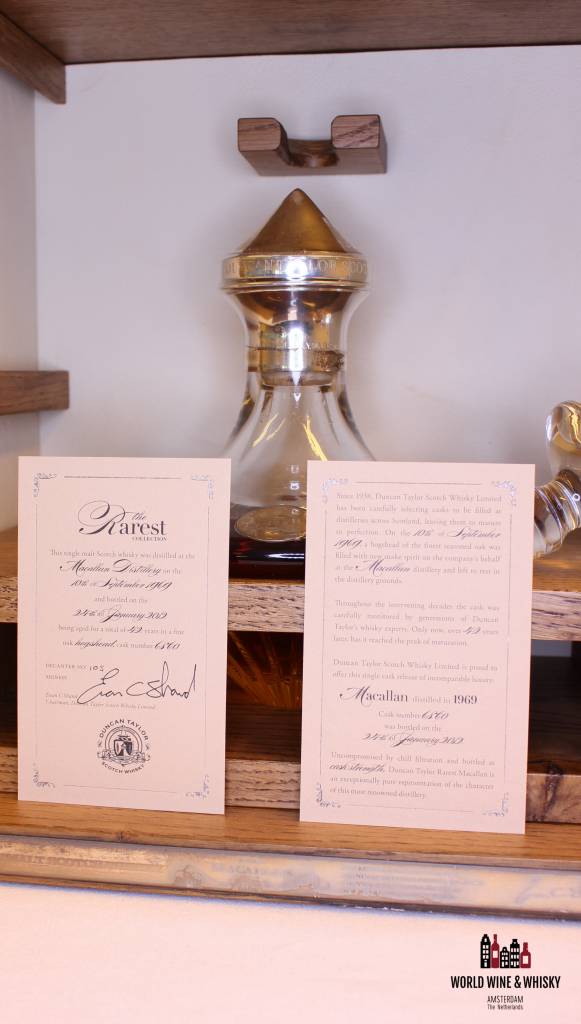 DUNCAN TAYLOR SCOT
the
Rarest
COLLECTION
This single malt Scotch whisky was distilled at the
Macallan Distillery on the
10th of September 1969
and bottled on the
24th of January 2012
being aged for a total of 42 years in a fine
oak hogshead, cask number 6860
DECANTER NO: 105
SIGNED:
Euan C Shand
Chairman, Duncan Taylor Scotch Whisky Limited
DUNCAN TAYLOR
SCOTCH WHISKY
Since 1938, Duncan Taylor Scotch Whisky Limited
has been carefully selecting casks to be filled at
distilleries across Scotland, leaving them to mature
to perfection. On the 10th of September
1969 a hogshead of the finest seasoned oak was
filled with new make spirit on the company's behalf
at the Macallan distillery and life to rest in
the distillery grounds.
Throughout the intervening decades the cask was
carefully monitored by generations of Duncan
Taylor's whisky experts. Only now, over 42 years
later, has it reached the peak of maturation.
Duncan Taylor Scotch Whisky Limited is proud to
offer this single cask release of incomparable luxury:
Macallan distilled in 1969
Cask number 6860
was bottled on the
24th of January 2012
Uncompromised by chill filtration and bottled at
cask strength, Duncan Taylor Rarest Macallan is
an exceptionally pure representation of the character
of this most renowned distillery.
WORLD WINE & WHISKY
AMSTERDAM
The Netherlands